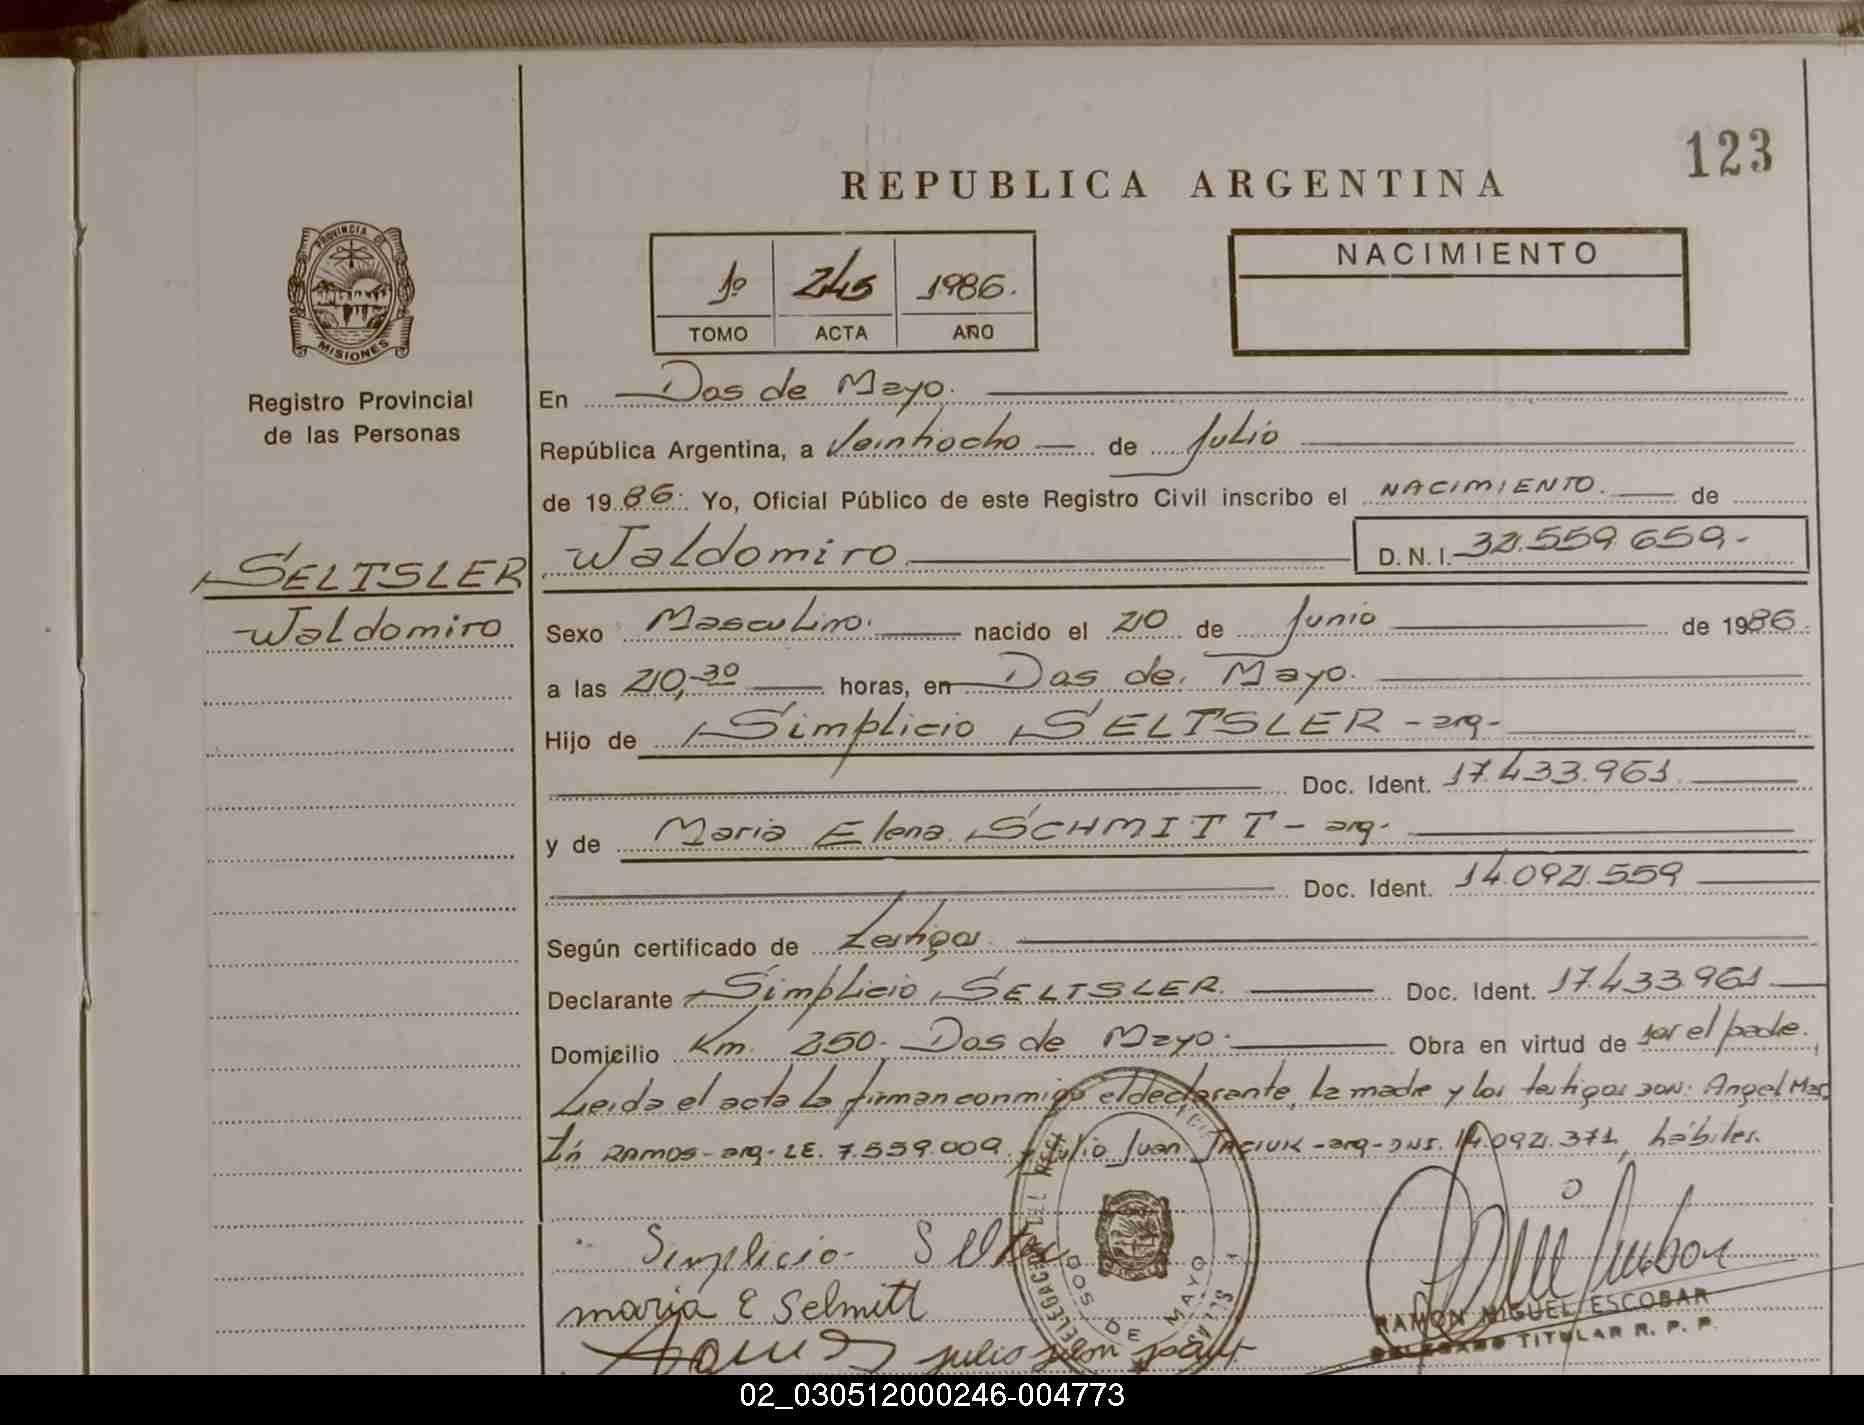 123
REPUBLICA ARGENTINA
PROVINCIA DE
MISIONES
Registro Provincial
de las Personas
1º 245 1986.
TOMO ACTA AÑO
NACIMIENTO
En Dos de Mayo.
República Argentina, a Veintiocho de Julio
de 1986. Yo, Oficial Público de este Registro Civil inscribo el NACIMIENTO. de
SELTSLER
Waldomiro
Waldomiro D.N.I. 32.559.659.-
Sexo Masculino. nacido el 20 de Junio de 1986.
a las 20,30 horas, en Dos de Mayo.
Hijo de Simplicio SELTSLER - arg-
Doc. Ident. 17.433.961.
y de Maria Elena SCHMITT - arg-
Doc. Ident. 14.092.559
Según certificado de testigos.
Declarante Simplicio SELTSLER. Doc. Ident. 17.433.961
Domicilio Km. 250- Dos de Mayo. Obra en virtud de ser el padre.
Leida el acta la firman conmigo el declarante, la madre y los testigos son: Angel Mar
tín RAMOS - arg - LE. 7.559.009 y Julio Juan - arg - DNI. 14.092.371, hábiles.
Simplicio
maria E Selmitt
julio juan
DOS DE MAYO
RAMON MIGUEL ESCOBAR
DELEGADO TITULAR R. P. P.
02_030512000246-004773